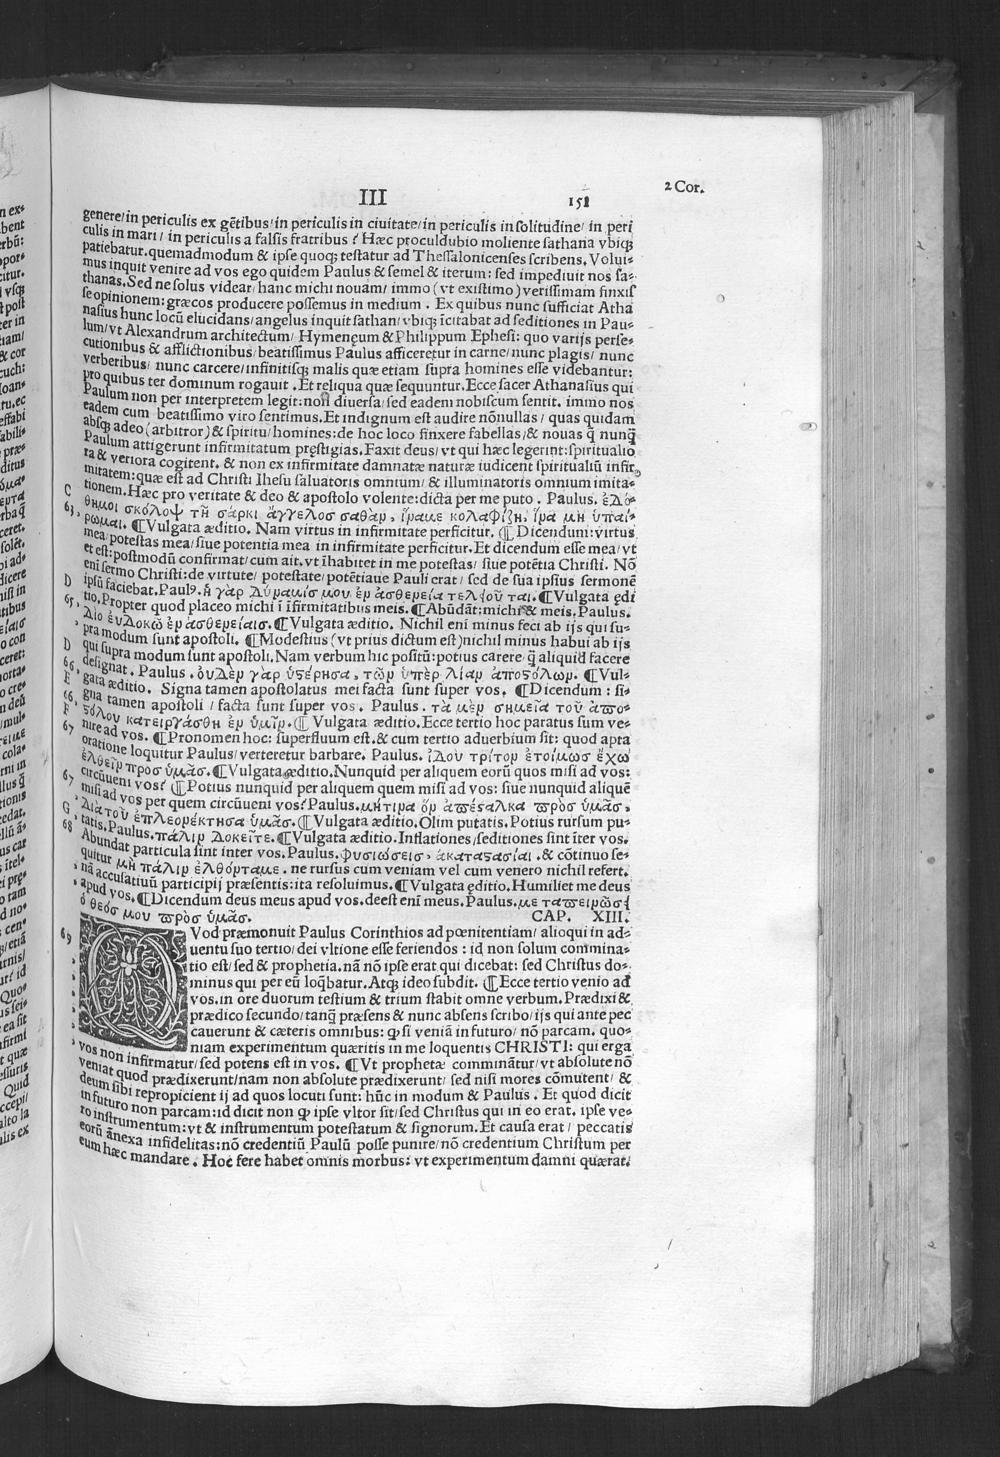 III
151
2 Cor.
genere/in periculis ex gẽtibus/in periculis in ciuitate/in periculis in solitudine/ in peri
culis in mari/ in periculis a falsis fratribus? Hæc proculdubio moliente sathana vbiqꝫ
patiebatur. quemadmodum & ipse quoqꝫ testatur ad Thessalonicenses scribens. Volui-
mus inquit venire ad vos ego quidem Paulus & semel & iterum: sed impediuit nos sa-
thanas. Sed ne solus videar/ hanc michi nouam/ immo (vt existimo) verissimam finxis
se opinionem: græcos producere possemus in medium. Ex quibus nunc sufficiat Atha
nasius hunc locũ elucidans/ angelus inquit sathan/ vbiqꝫ ĩcitabat ad seditiones in Pau-
lum/ vt Alexandrum architectum/ Hymenęum & Philippum Ephesi: quo varijs perse-
cutionibus & afflictionibus/ beatissimus Paulus afficeretur in carne/ nunc plagis/ nunc
verberibus/ nunc carcere/ infinitisqꝫ malis quæ etiam supra homines esse videbantur:
pro quibus ter dominum rogauit. Et reliqua quæ sequuntur. Ecce sacer Athanasius qui
Paulum non per interpretem legit: non diuersa/ sed eadem nobiscum sentit. immo nos
eadem cum beatissimo viro sentimus. Et indignum est audire nõnullas/ quas quidam
absqꝫ adeo (arbitror) & spiritu/ homines: de hoc loco finxere fabellas/ & nouas q̃ nunq̃
Paulum attigerunt infirmitatum pręstigias. Faxit deus/ vt qui hæc legerint: spiritualio
ra & veriora cogitent. & non ex infirmitate damnatæ naturæ iudicent spiritualiũ infir
mitatem: quæ est ad Christi Ihesu saluatoris omnium/ & illuminatoris omnium imita-
tionem. Hæc pro veritate & deo & apostolo volente: dicta per me puto. Paulus. ἐδό-
C
63, θημοι σκόλοψ τῇ σάρκι ἄγγελος σαθὰν, ἵναμε κολαφίζῃ, ἵνα μὴ ὑπαί-
ρωμαι. ¶ Vulgata æditio. Nam virtus in infirmitate perficitur. ¶ Dicendum: virtus
mea/ potestas mea/ siue potentia mea in infirmitate perficitur. Et dicendum esse mea/ vt
et est: postmodũ confirmat/ cum ait. vt ĩhabitet in me potestas/ siue potẽtia Christi. Nõ
eni sermo Christi: de virtute/ potestate/ potẽtiaue Pauli erat/ sed de sua ipsius sermonẽ
D ipsũ faciebat. Paulꝰ. ἡ γὰρ Δύναμίς μου ἐν ἀσθενεία τελειοῦται. ¶ Vulgata ędi
65, tio. Propter quod placeo michi ĩ ĩfirmitatibus meis. ¶ Abũdãt: michi & meis. Paulus.
, Διο ἐυΔοκῶ ἐν ἀσθενείαις. ¶ Vulgata æditio. Nichil eni minus feci ab ijs qui su-
pra modum sunt apostoli. ¶ Modestius (vt prius dictum est) nichil minus habui ab ijs
D qui supra modum sunt apostoli. Nam verbum hic positũ: potius carere q̃ aliquid facere
66, designat. Paulus. ὀυΔὲν γὰρ ὑςέρησα, τῶν ὑπὲρ λίαν ἀποςόλων. ¶ Vul-
E gata æditio. Signa tamen apostolatus mei facta sunt super vos. ¶ Dicendum: si-
66, gna tamen apostoli / facta sunt super vos. Paulus. τὰ μὲν σημεῖα τοῦ ἀπο-
F ςόλου κατειργάσθη ἐν ὑμῖν. ¶ Vulgata æditio. Ecce tertio hoc paratus sum ve-
67 nire ad vos. ¶ Pronomen hoc: superfluum est. & cum tertio aduerbium sit: quod apta
oratione loquitur Paulus/ verteretur barbare. Paulus. ἰΔοὺ τρίτον ἑτοίμως ἔχω
ἐλθεῖν προς ὑμᾶς. ¶ Vulgata æditio. Nunquid per aliquem eorũ quos misi ad vos:
67, circũueni vos? ¶ Potius nunquid per aliquem quem misi ad vos: siue nunquid aliquẽ
misi ad vos per quem circũueni vos? Paulus. μήτινα ὃν ἀπέςαλκα πρὸς ὑμᾶς,
G, Διατοῦ ἐπλεονέκτησα ὑμᾶς. ¶ Vulgata æditio. Olim putatis. Potius rursum pu-
68 tatis. Paulus. πάλιν Δοκεῖτε. ¶ Vulgata æditio. Inflationes/ seditiones sint ĩter vos.
Abundat particula sint inter vos. Paulus. φυσιώσεις, ἀκαταςασίαι. & cõtinuo se-
quitur μὴ πάλιν ἐλθόνταμε. ne rursus cum veniam vel cum venero nichil refert.
, nã accusatiuũ participij præsentis: ita resoluimus. ¶ Vulgata ęditio. Humiliet me deus
, apud vos. ¶ Dicendum deus meus apud vos. deest eni meus. Paulus. με ταπεινώσῃ
ὁ θεός μου πρὸς ὑμᾶς.
CAP. XIII.
69 QVod præmonuit Paulus Corinthios ad pœnitentiam/ alioqui in ad-
uentu suo tertio/ dei vltione esse feriendos: id non solum commina-
tio est/ sed & prophetia. nã nõ ipse erat qui dicebat: sed Christus do-
minus qui per eũ loq̃batur. Atqꝫ ideo subdit. ¶ Ecce tertio venio ad
vos. in ore duorum testium & trium stabit omne verbum. Prædixi &
prædico secundo/ tanq̃ præsens & nunc absens scribo/ ijs qui ante pec
cauerunt & cæteris omnibus: ꝙ si veniã in futuro/ nõ parcam. quo-
niam experimentum quæritis in me loquentis CHRISTI: qui erga
vos non infirmatur/ sed potens est in vos. ¶ Vt prophetæ comminãtur/ vt absolute nõ
veniat quod prædixerunt/ nam non absolute prædixerunt/ sed nisi mores cõmutent/ &
deum sibi repropicient ij ad quos locuti sunt: hũc in modum & Paulus. Et quod dicit
in futuro non parcam: id dicit non ꝙ ipse vltor sit/ sed Christus qui in eo erat. ipse ve-
ro instrumentum: vt & instrumentum potestatum & signorum. Et causa erat/ peccatis
eorũ ãnexa infidelitas: nõ credentiũ Paulũ posse punire/ nõ credentium Christum per
eum hæc mandare. Hoc fere habet omnis morbus: vt experimentum damni quærat.